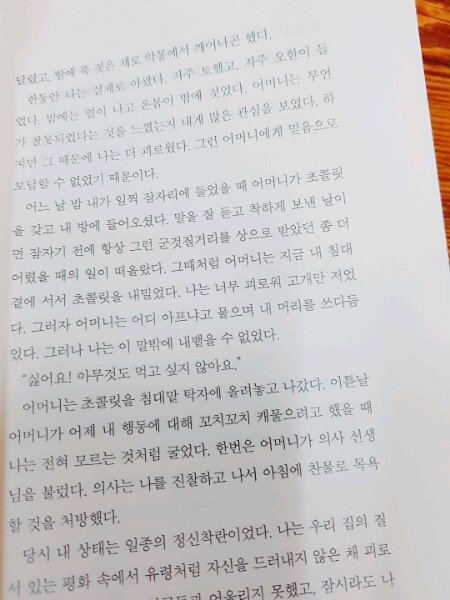 달렸고, 땀에 푹 젖은 채로 악몽에서 깨어나곤 했다.
한동안 나는 실제로 아팠다. 자주 토했고, 자주 오한이 들
었다. 밤에는 열이 나고 온몸이 땀에 젖었다. 어머니는 무언
가 잘못되었다는 것을 느꼈는지 내게 많은 관심을 보였다. 하
지만 그 때문에 나는 더 괴로웠다. 그런 어머니에게 믿음으로
보답할 수 없었기 때문이다.
어느 날 밤 내가 일찍 잠자리에 들었을 때 어머니가 초콜릿
을 갖고 내 방에 들어오셨다. 말을 잘 듣고 착하게 보낸 날이
면 잠자기 전에 항상 그런 군것질거리를 상으로 받았던 좀 더
어렸을 때의 일이 떠올랐다. 그때처럼 어머니는 지금 내 침대
곁에 서서 초콜릿을 내밀었다. 나는 너무 괴로워 고개만 저었
다. 그러자 어머니는 어디 아프냐고 물으며 내 머리를 쓰다듬
었다. 그러나 나는 이 말밖에 내뱉을 수 없었다.
“싫어요! 아무것도 먹고 싶지 않아요.”
어머니는 초콜릿을 침대말 탁자에 올려놓고 나갔다. 이튿날
어머니가 어제 내 행동에 대해 꼬치꼬치 캐물으려고 했을 때
나는 전혀 모르는 것처럼 굴었다. 한번은 어머니가 의사 선생
님을 불렀다. 의사는 나를 진찰하고 나서 아침에 찬물로 목욕
할 것을 처방했다.
당시 내 상태는 일종의 정신착란이었다. 나는 우리 집의 질
서 있는 평화 속에서 유령처럼 자신을 드러내지 않은 채 괴로
어울리지 못했고, 잠시라도 나